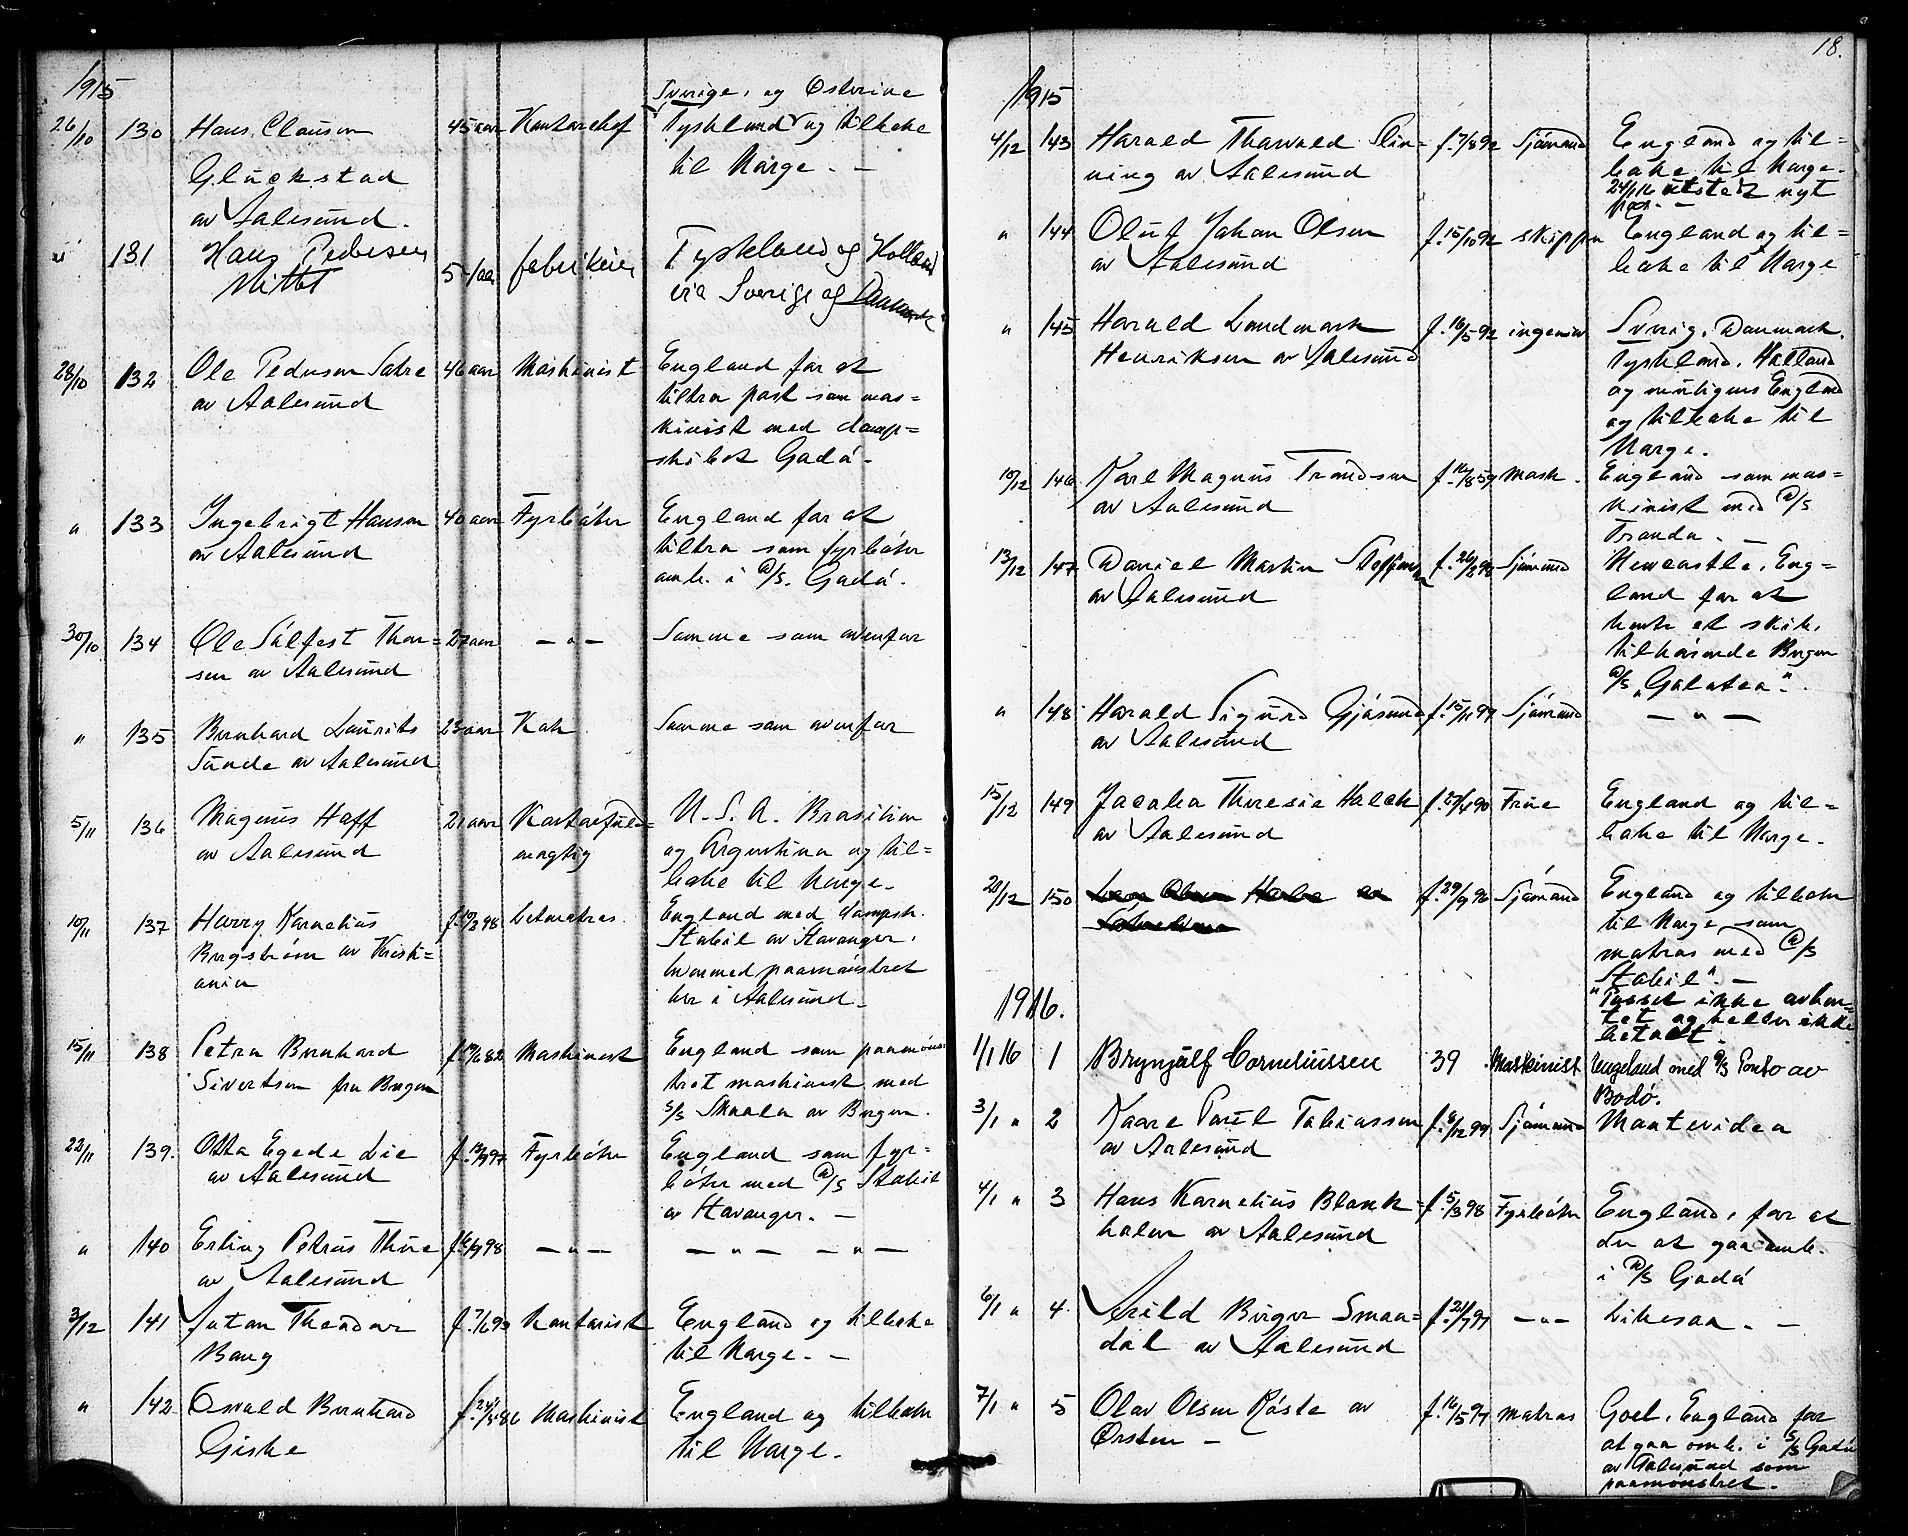 1915
Sverige, og Østerike
26/10 130 Hans Clauson 45 aar Kontorchef Tyskland og tilbake
Glückstad til Norge. —
av Aalesund.
" 131 Hans Pedersen 5 aar fabrikeier Tyskland og Holland
Mittet via Sverige og Danmark
28/10 132 Ole Pederson Satre 46 aar Maskinist England for at
av Aalesund tiltra post som mas=
kinist med damp=
skibet Gadø.
" 133 Ingebrigt Hanson 40 aar Fyrbøter England for at
av Aalesund tiltra som fyrbøter
omb. i D/S. Gadø.
30/10 134 Ole Sølfest Thor= 27 aar — " — Samme som ovenfor
sen av Aalesund
" 135 Bernhard Laurits 23 aar Kok Samme som ovenfor
Sunde av Aalesund
5/11 136 Magnus Hoff 21 aar Kontorfuld= U.S.A. Brasilien
av Aalesund mægtig og Argentina og til=
bake til Norge.
10/11 137 Harry Kornelius f. 98 Letmatros England med dampsk.
Bergstrøm av Kristi= Stabil av Stavanger,
ania hvormed paamønstret
her i Aalesund.
15/11 138 Petra Bernhard f. 82 Maskinist England som paamøns=
Sivertsen fra Bergen tret maskinist med
S/S Skaala av Bergen.
22/11 139. Otto Egede Lie f. 97 Fyrbøter England som fyr=
av Aalesund bøter med D/S Stabil
av Stavanger. —
" 140 Erling Petrus Thue f. 98 — " — — " — — " —
av Aalesund
3/12 141 Johan Theodor f. 7/6 93 Kontorist England og tilbake
Bang til Norge. —
" 142. Osvald Bernhard f. 86 Maskinist England og tilbake
Giske til Norge.
18.
1915
4/12 143 Harald Thorvald Slin= f. 7/8 92 Sjømand England og til=
ning av Aalesund bake til Norge.
24/1 16 utstedt nyt
pas. —
" 144 Oluf Johan Olsen f. 15/10 92 skipper England og til=
av Aalesund bake til Norge
" 145 Harald Landmark f. 16/5 92 ingeniør Sverig, Danmark,
Henriksen av Aalesund Tyskland, Holland
og muligens England
og tilbake til
Norge.
10/12 146 Karl Magnus Trondsen f. 8 59 Mask. England som mas=
av Aalesund kinist med D/S
Tronda. —
13/12 147 Daniel Martin f. 26 98 Sjømand Newcastle, Eng=
av Aalesund land for at
hente et skib,
tilhørende Bergen
D/S „Galatea".
" 148 Harald Sigurd Gjøsund f. 15/11 97 Sjømand — " —
av Aalesund
15/12 149 Jacoba Theresie Halck f. 90 Frue England og til=
av Aalesund bake til Norge.
20/12 150 f. 29/9 96 Sjømand England og tilbake
til Norge som
matros med D/S
Stabil". —
"Passet ikke avhen=
tet og heller ikke
betalt.
1916.
1/1 16 1 Brynjulf Corneliussen 39 Maskinist England med D/S Ponto av
Bodø.
3/1 " 2 Kaare Poul Tobiassen f. 8/12 97 Sjømand Montevideo
av Aalesund
4/1 " 3 Hans Kornelius Blank= f. 5/3 98 Fyrbøter England, for at
holm av Aalesund der at gaa omb.
i D/S Gadø
6/1 " 4. Arild Birger Smaa= f. 21/7 97 — " — Likesaa. —
dal av Aalesund
7/1 " 5 Olav Olsen Røste av f. 16/5 97 matros Goel, England for
Ørsten — at gaa omb. i S/S Gadø
av Aalesund som
paamønstret.